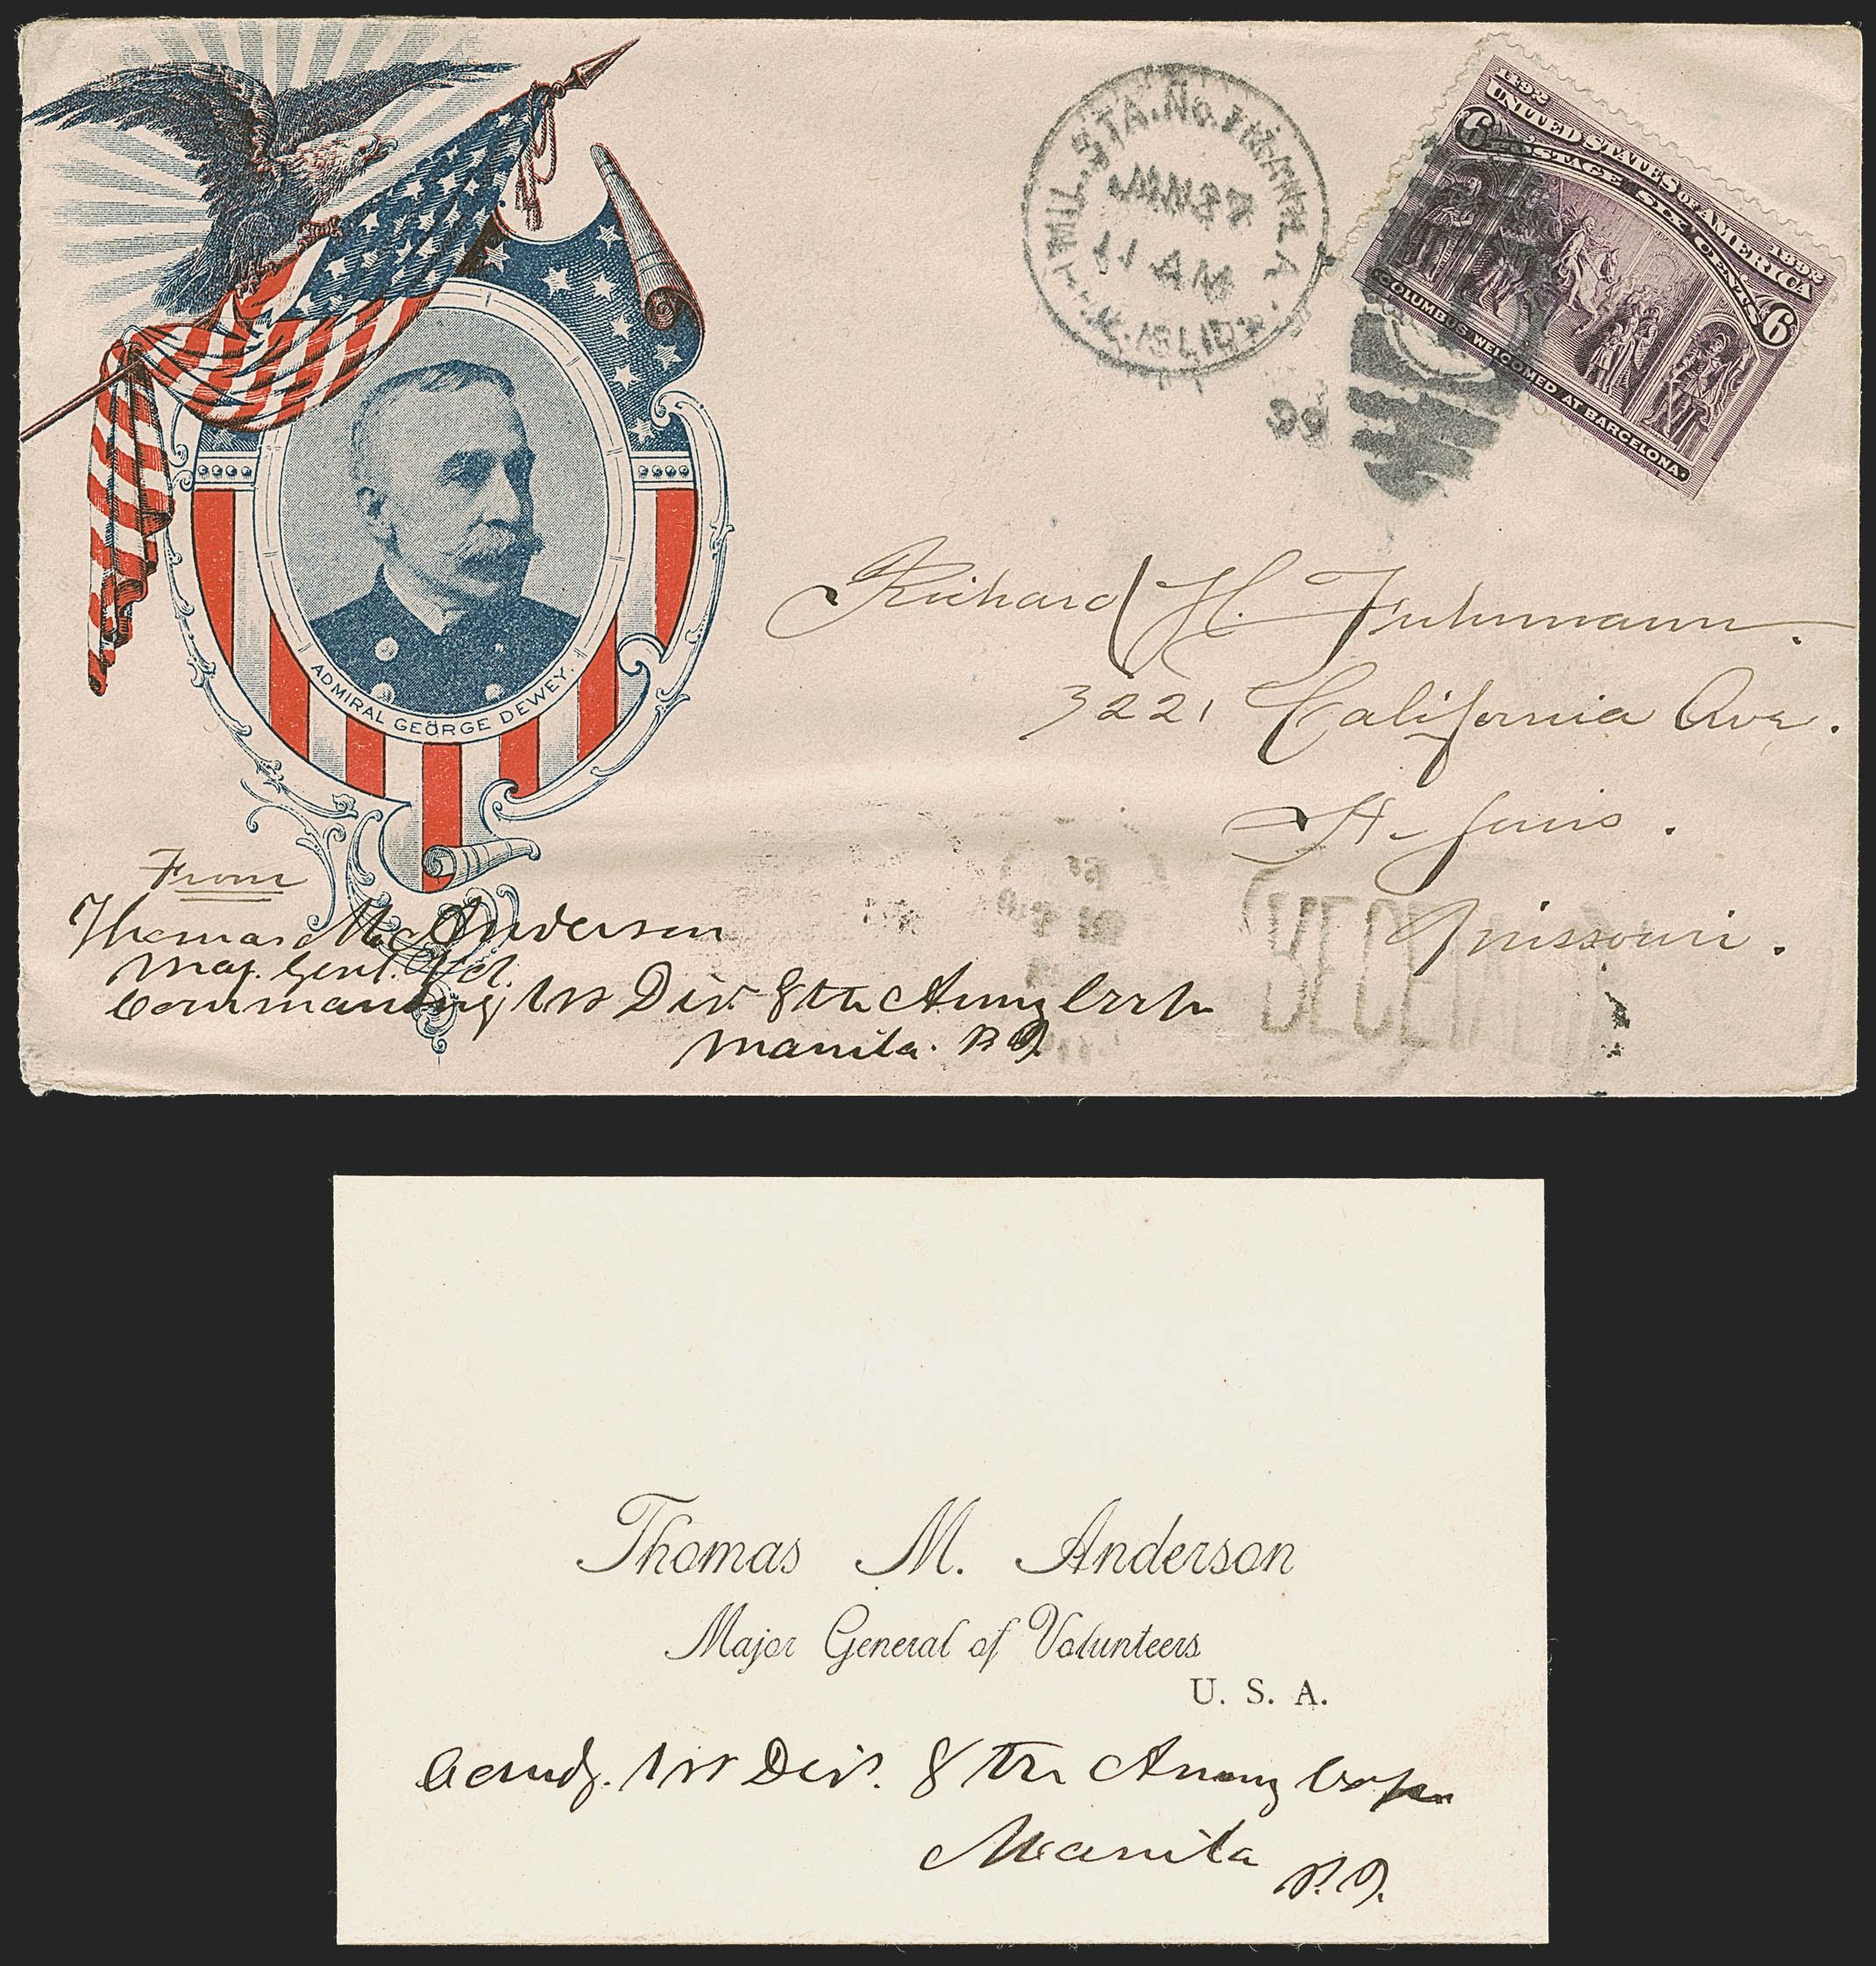 1892
UNITED STATES OF AMERICA
1892
6 POSTAGE SIX CENTS 6
COLUMBUS WELCOMED AT BARCELONA.
STA. No. 1 MANILA
11 AM
99
ADMIRAL GEORGE DEWEY.
Richard H. Fuhrmann.
3221 California Ave.
St. Louis.
Missouri.
From
Thomas M. Anderson
Maj. Genl. Vol.
Commanding 1st Div. 8th Army Corps
Manila. P.I.
RECEIVED
Thomas M. Anderson
Major General of Volunteers
U. S. A.
Comdg. 1st Div. 8th Army Corps
Manila
P.I.